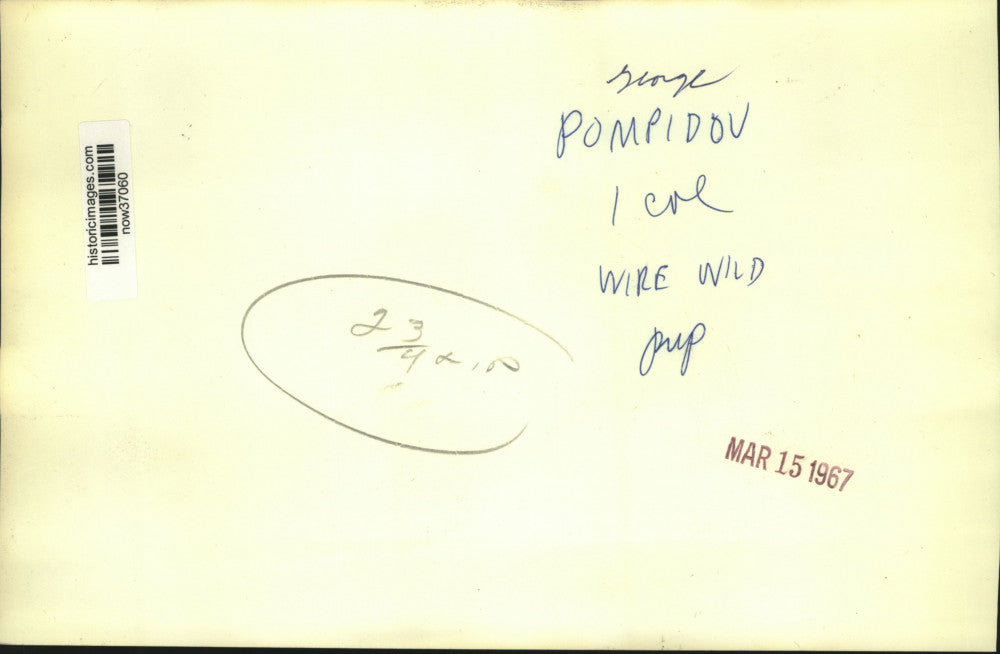 historicimages.com
now37060
george
POMPIDOU
1 col
WIRE WILD
pup
2 3/4 x
MAR 15 1967